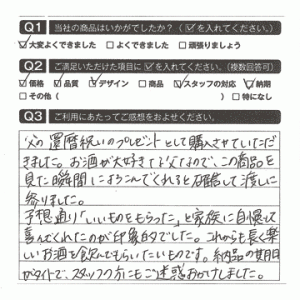 Q1 当社の商品はいかがでしたか？（☑を入れてください。）
☑大変よくできました □よくできました □頑張りましょう
Q2 ご満足いただけた項目に☑を入れてください。（複数回答可）
☑価格 ☑品質 ☑デザイン □商品 ☑スタッフの対応 ☑納期
□その他（ ） □特になし
Q3 ご利用にあたってご感想をおよせください。
父の還暦祝いのプレゼントとして購入させていただ
きました。お酒が大好きな父なので、この商品を
見た瞬間によろこんでくれると確信して渡しに
参りました。
予想通り「いいものをもらった」と家族に自慢して
喜んでくれたのが印象的でした。これからも長く楽し
いお酒を飲んでもらいたいものです。納品の期日
がタイトで、スタッフの方にもご迷惑おかけしました。